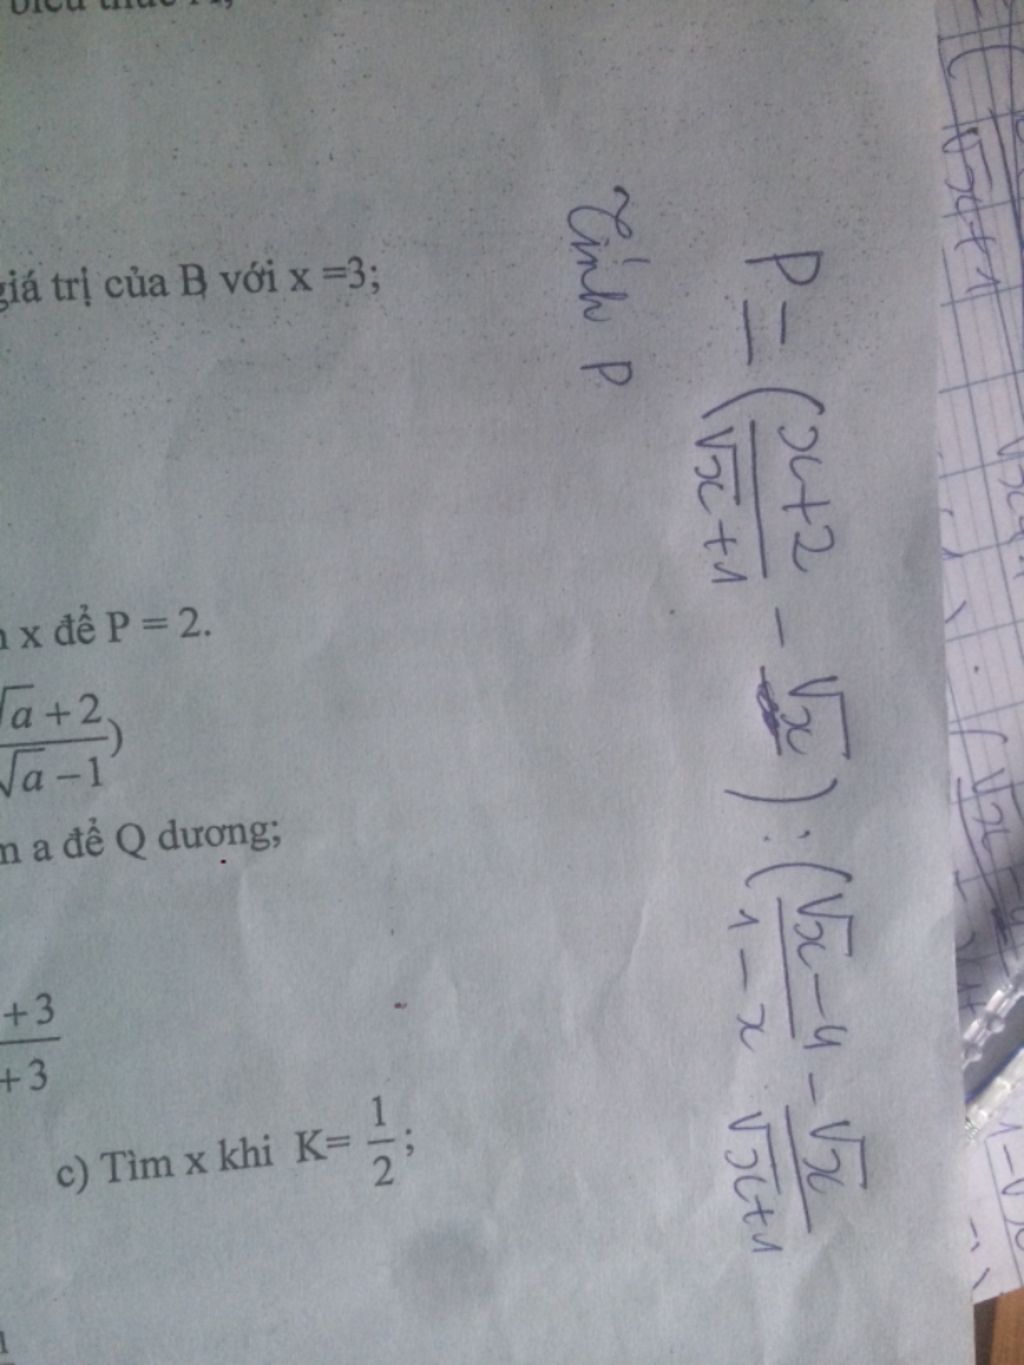 giá trị của B với x =3;
x để P = 2.
√a + 2
√a − 1)
a để Q dương;
+ 3
+ 3
c) Tìm x khi K= 1/2;
P = (x+2/√x+1 − √x) : (√x−4/1−x − √x/√x+1)
Tính P
√x+1